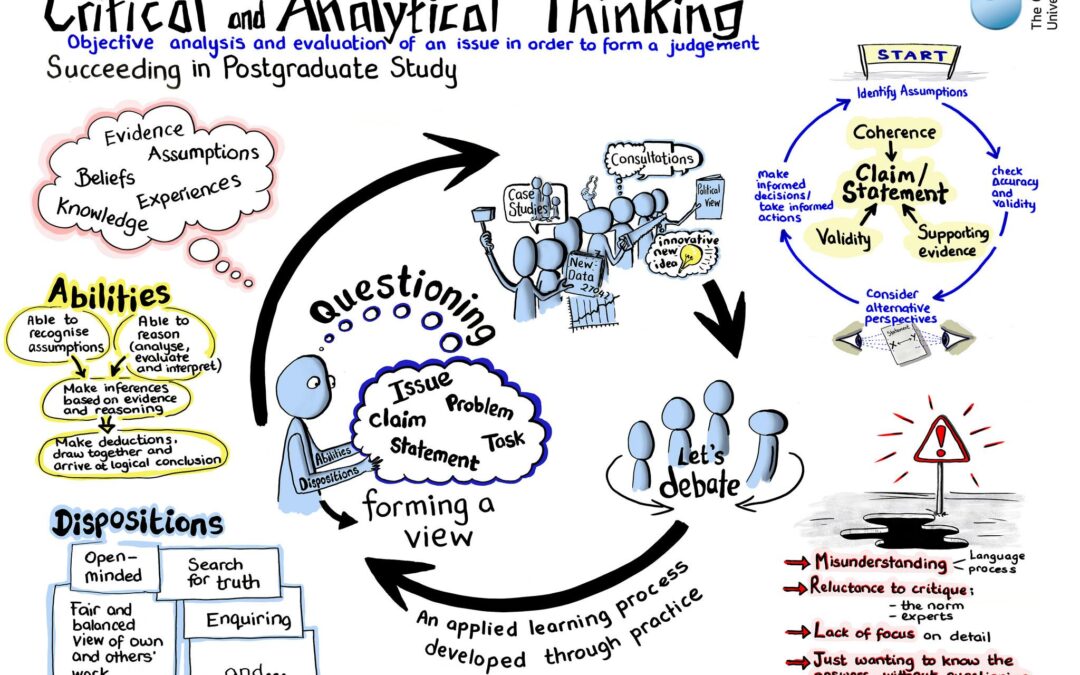 Critical and Analytical Thinking
Objective analysis and evaluation of an issue in order to form a judgement
Succeeding in Postgraduate Study
The
Univer
Evidence
Assumptions
Beliefs
Experiences
Knowledge
Abilities
Able to
recognise
assumptions
Able to
reason
(analyse,
evaluate
and interpret)
Make inferences
based on evidence
and reasoning
Make deductions,
draw together and
arrive at logical conclusion
Dispositions
Open-
minded
Search
for truth
Fair and
balanced
view of own
and others'
work
Enquiring
and...
Questioning
Issue
Problem
Claim
Statement
Task
Abilities
Dispositions
forming a
view
Case
Studies
Consultations
Political
View
innovative
new
idea
New
Data
Let's
debate
An applied learning process
developed through practice
START
Identify Assumptions
check
accuracy
and
validity
Consider
alternative
perspectives
make
informed
decisions/
take informed
actions
Coherence
Claim/
Statement
Validity
Supporting
evidence
Statement
X ↔ Y
!
Misunderstanding
Language
process
Reluctance to critique:
- the norm
- experts
Lack of focus on detail
Just wanting to know the
answers without questioning